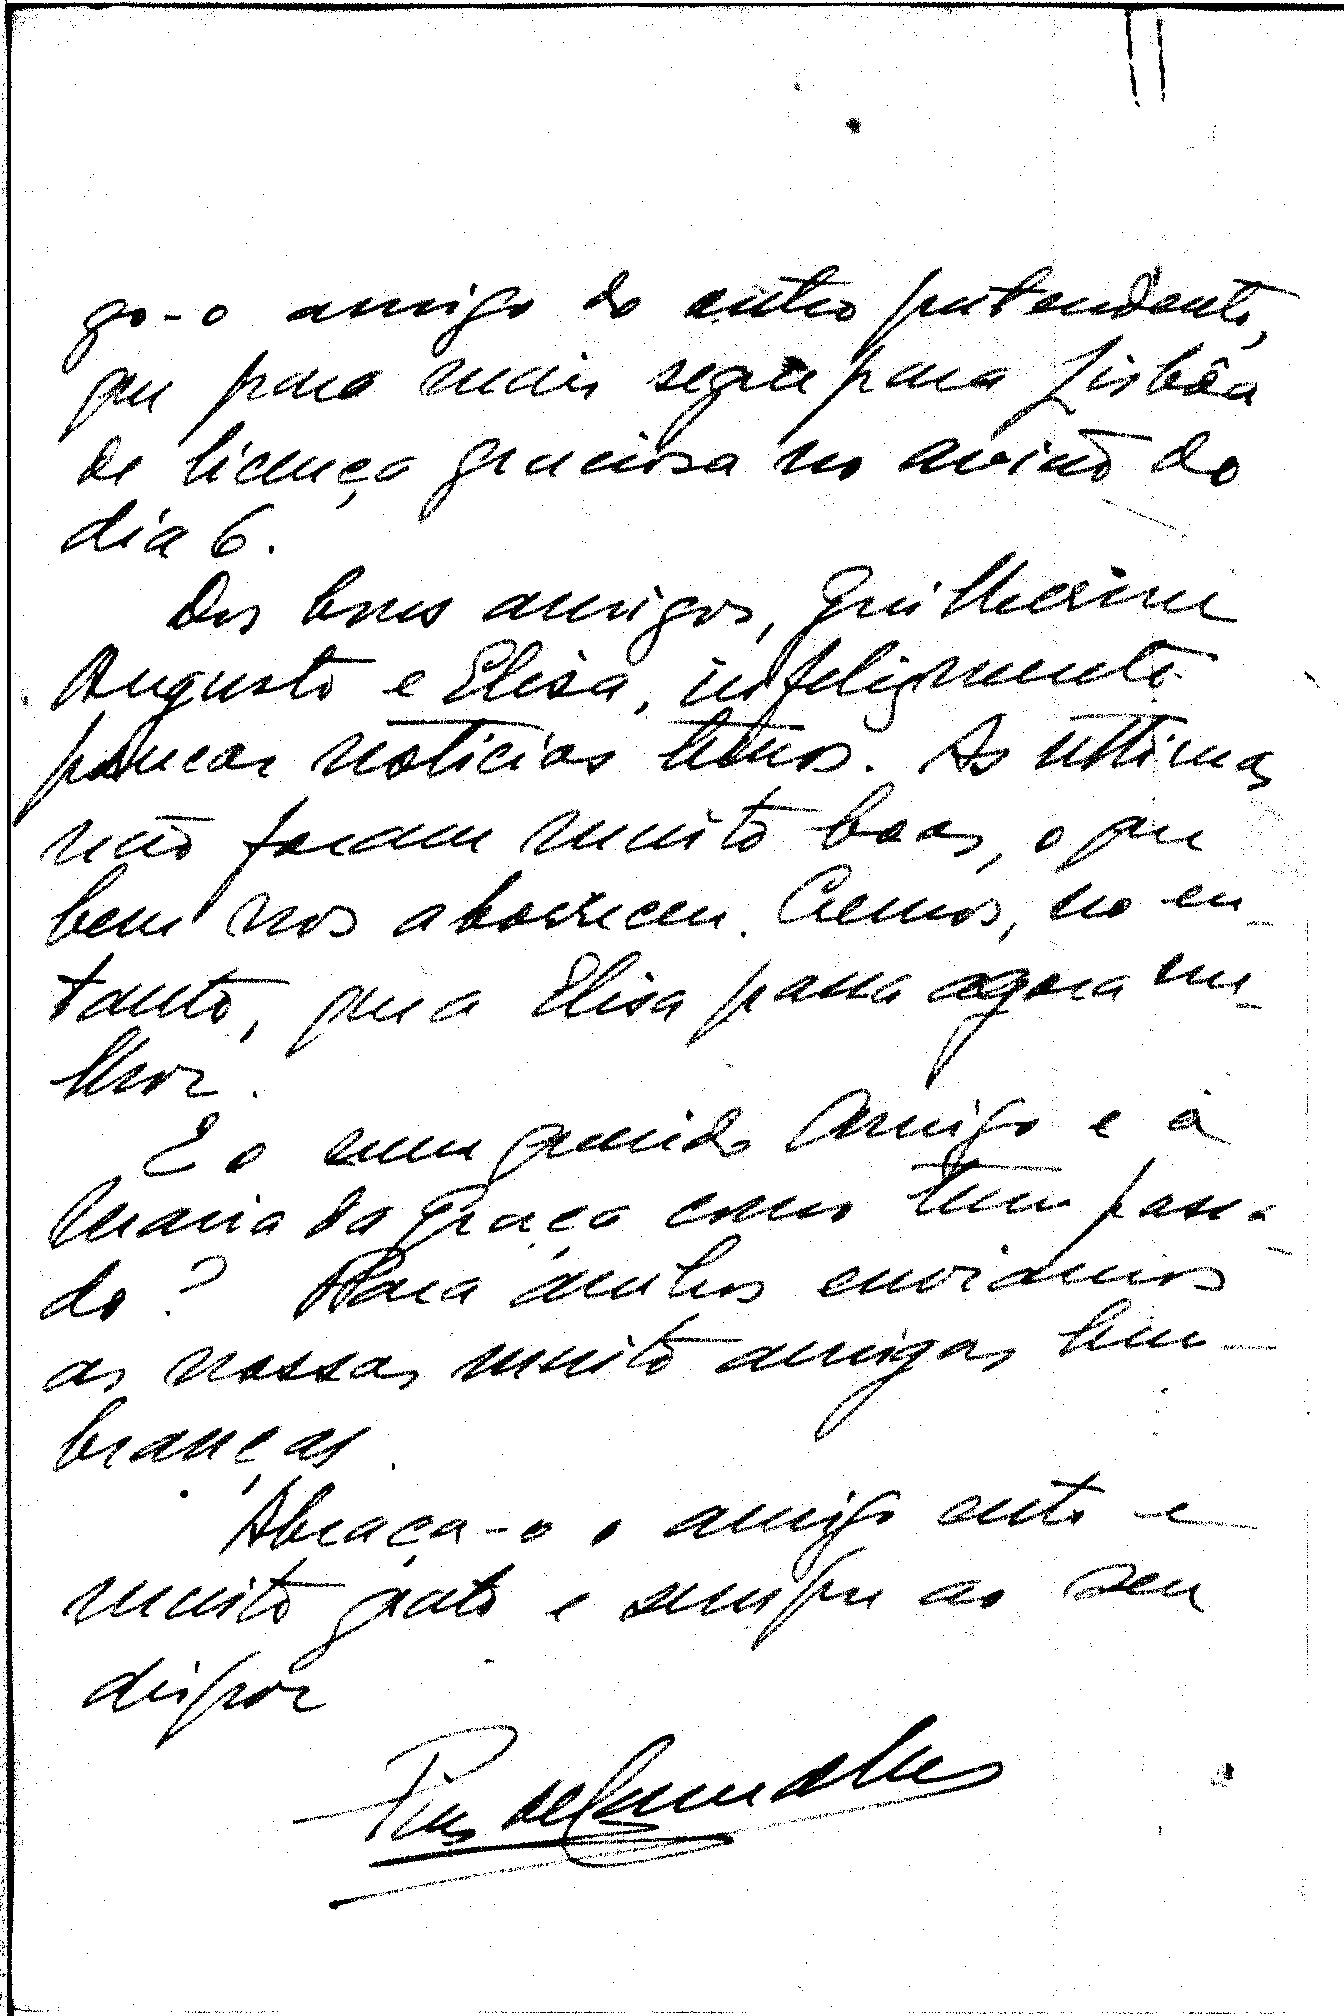 go-o amigo do outro pretendente,
que para mais segue para Lisbôa
de licença graciosa no avião do
dia 6.
Dos bons amigos, Guilhermina
Augusto e Elisa, infelizmente
poucas notícias temos. As ultimas
não foram muito boas, o que
bem nos aborreceu. Cremos, no en-
tanto, que a Elisa passa agora me-
lhor.
E o meu querido Amigo e a
Maria da Graça como tem passa-
do? Para ambos enviamos
as nossas muito amigas lem-
branças.
Abraça-o o amigo certo e
muito grato e sempre ao seu
dispor